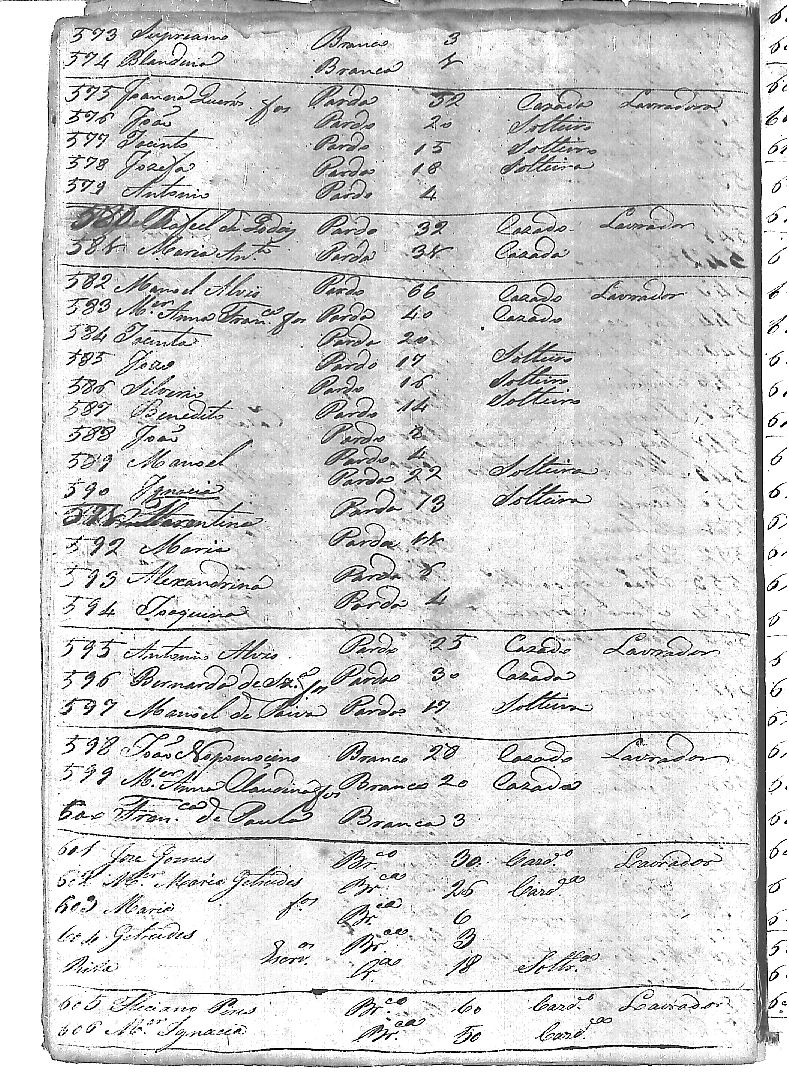 573 Supriano Branco 3
574 Blandina Branca 1
575 Joanna Pardo 52 Cazada Lavradora
576 João fos Pardo 20 Solteiro
577 Jacinto Pardo 15 Solteiro
578 Jozefa Parda 18 Solteira
579 Antonio Pardo 4
Rafael de Godoy Pardo 32 Cazado Lavrador
581 Maria Antª Parda 38 Cazada
582 Manoel Alvis Pardo 66 Cazado Lavrador
583 Mer Anna Francª fos Parda 40 Cazado
584 Jacinta Parda 20
585 João Pardo 17 Solteiro
586 Silverio Pardo 16 Solteiro
587 Benedito Pardo 14 Solteiro
588 João Pardo 8
589 Manoel Pardo 4
590 Ignacia Parda 22 Solteira
Parda 13 Solteira
592 Maria Parda 11
593 Alexandrina Parda 8
594 Joaquina Parda 4
595 Antonio Alvis Pardo 25 Cazado Lavrador
596 Bernarda de Szª fos Parda 30 Cazada
597 Manoel de Paiva Pardo 17 Solteiro
598 João Nepomoceno Branco 28 Cazado Lavrador
599 Mer Anna Claudina fos Branca 20 Cazada
600 Francª de Paula Branca 3
601 Joze Gomes Brco 30 Cazdo Lavrador
602 Mer Maria Getrudes Brca 26 Cazda
603 Maria fos Brca 6
604 Getrudes Brca 3
Rita Escros Cra 18 Soltra
605 Feliciano Pires Brco 60 Cazdo Lavrador
606 Mer Ignacia Brca 50 Cazda